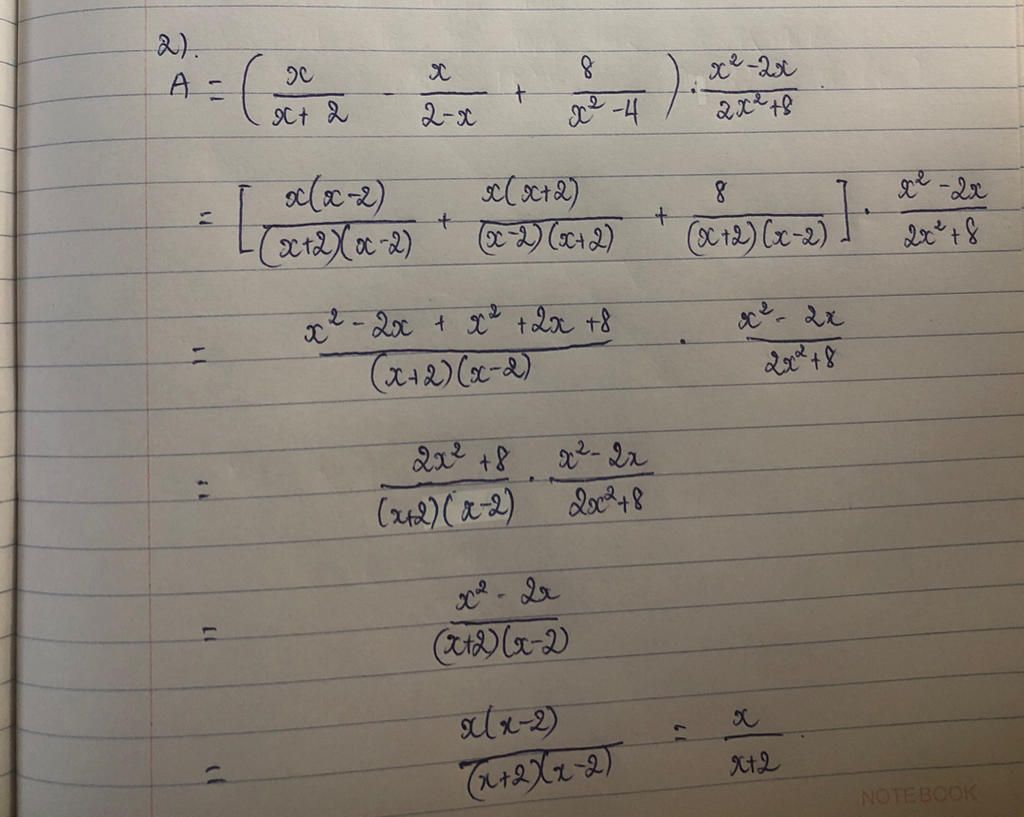 2).
A = ( x/(x+2) - x/(2-x) + 8/(x²-4) ) · (x²-2x)/(2x²+8)
= [ x(x-2)/((x+2)(x-2)) + x(x+2)/((x-2)(x+2)) + 8/((x+2)(x-2)) ] · (x²-2x)/(2x²+8)
= (x²-2x+x²+2x+8)/((x+2)(x-2)) · (x²-2x)/(2x²+8)
= (2x²+8)/((x+2)(x-2)) · (x²-2x)/(2x²+8)
= (x²-2x)/((x+2)(x-2))
= x(x-2)/((x+2)(x-2)) = x/(x+2).
NOTEBOOK